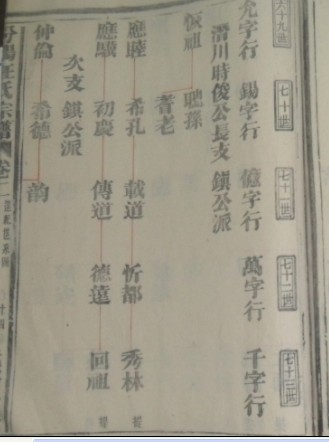 六十九世 七十世 七十一世 七十二世 七十三世
允字行 錫字行 億字行 萬字行 千字行
潛川時俊公長支 鎮公派
恢祖 聰孫
耆老
應陞 希孔 載道 忻都 秀林
應驥 初慶 傳道 德達 回祖
次支 鎮公派
仲倫 希德 韵
氏宗譜 卷二